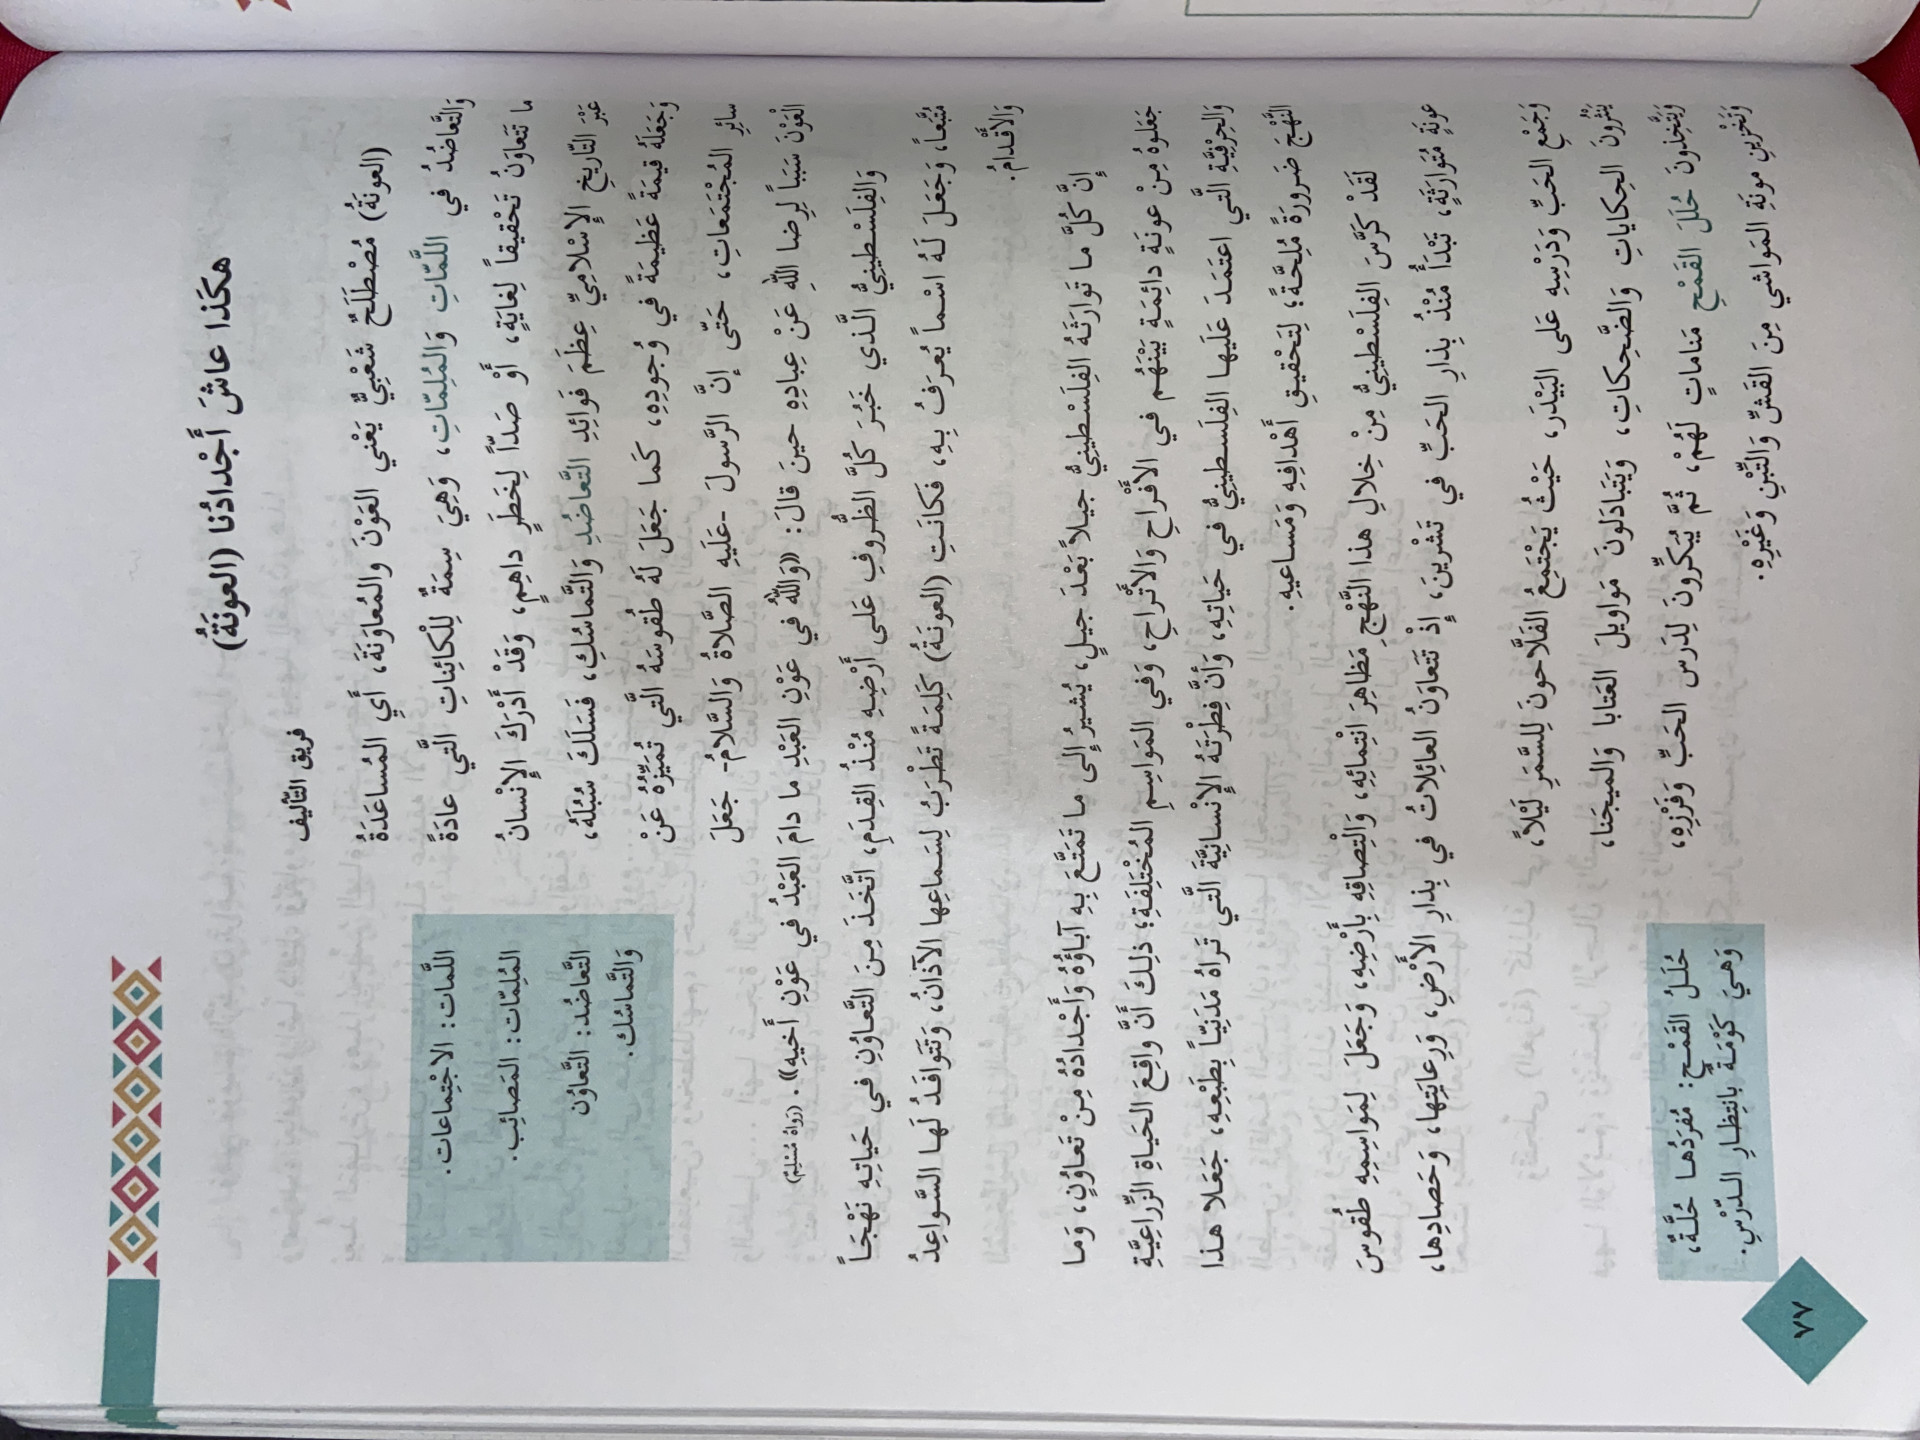 هكَذا عاشَ أَجْدادُنا (العونَةُ)
فريق التّأليف
(العونَةُ) مُصْطَلَحٌ شَعْبِيٌّ يَعْني العَوْنَ والمُعاوَنَةَ، أَيِ المُساعَدَةُ
وَالتَّعاضُدُ في اللَّمّاتِ وَالمُلِمّاتِ، وَهِيَ سِمَةٌ لِلْكائِناتِ الَّتي عادَةً
ما تَتَعاوَنُ تَحْقيقاً لِغايَةٍ، أَوْ صَدّاً لِخَطَرٍ داهِمٍ، وَقَدْ أَدْرَكَ الإِنْسانُ
عَبْرَ التّاريخِ الإِسْلامِيِّ عِظَمَ فَوائِدِ التَّعاضُدِ وَالتَّماسُكِ، فَسَلَكَ سُبُلَهُ،
وَجَعَلَهُ قيمَةً عَظيمَةً في وُجودِهِ، كَما جَعَلَ لَهُ طُقوسَهُ الَّتي تُمَيِّزُهُ عَنْ
سائِرِ المُجْتَمَعاتِ، حَتّى إِنَّ الرَّسولَ -عَلَيهِ الصَّلاةُ وَالسَّلامُ- جَعَلَ
العَوْنَ سَبَباً لِرِضا اللهِ عَنْ عِبادِهِ حينَ قالَ: «وَاللهُ في عَوْنِ العَبْدِ ما دامَ العَبْدُ في عَوْنِ أَخيهِ». (رَواهُ مُسْلِمٌ)
وَالفِلَسْطينِيُّ الَّذي خَبُرَ كُلَّ الظُّروفِ عَلى أَرْضِهِ مُنْذُ القِدَمِ، اتَّخَذَ مِنَ التَّعاوُنِ في حَياتِهِ نَهْجَاً
مُتَّبَعاً، وَجَعَلَ لَهُ اسْماً يُعرَفُ بِهِ، فَكانَتِ (العونَةُ) كَلِمَةً تَطْرَبُ لِسَماعِها الآذانُ، وَتَتَوافَدُ لَها السَّواعِدُ
وَالأَقْدامُ.
إِنَّ كُلَّ ما تَوارَثَهُ الفِلَسْطينِيُّ جيلاً بَعْدَ جيلٍ، يُشيرُ إِلى ما تَمَتَّعَ بِهِ آباؤُهُ وَأَجْدادُهُ مِنْ تَعاوُنٍ، وَما
جَعَلوهُ مِنْ عونَةٍ دائِمَةٍ بَيْنَهُم في الأَفْراحِ وَالأَتْراحِ، وَفي المَواسِمِ المُخْتَلِفَةِ؛ ذلِكَ أَنَّ واقِعَ الحَياةِ الزِّراعِيَّةِ
وَالحِرْفِيَّةِ الَّتي اعتَمَدَ عَلَيها الفِلَسطينِيُّ في حَياتِهِ، وَأَنَّ فِطْرَتَهُ الإِنْسانِيَّةَ الَّتي تَراهُ مَدَنِيّاً بِطَبْعِهِ، جَعَلا هذا
النَّهْجَ ضَرورَةً مُلِحَّةً؛ لِتَحْقيقِ أَهْدافِهِ وَمَساعيهِ.
لَقَدْ كَرَّسَ الفِلَسْطينِيُّ مِنْ خِلالِ هذا النَّهْجِ مَظاهِرَ انْتِمائِهِ، وَالْتِصاقِهِ بِأَرْضِهِ، وَجَعَلَ لِمَواسِمِهِ طُقوسَ
عونَةٍ مُتَوارَثَةٍ، تَبْدَأُ مُنْذُ بِذارِ الحَبِّ في تَشْرينَ، إِذْ تَتَعاوَنُ العائِلاتُ في بِذارِ الأَرْضِ، وَرِعايَتِها، وَحَصادِها،
وَجَمْعِ الحَبِّ وَدَرْسِهِ عَلى البَيْدَر، حَيْثُ يَجْتَمِعُ الفَلّاحونَ لِلسَّمَرِ لَيْلاً،
يَنْثُرونَ الحِكاياتِ وَالضَّحِكاتِ، وَيَتَبادَلونَ مَواويلَ العَتابا وَالميجَنا،
وَيَتَّخِذونَ حُلَلَ القَمْحِ مَناماتٍ لَهُمْ، ثُمَّ يُبَكِّرونَ لِدَرَسِ الحَبِّ وَفَرْزِهِ،
وَتَخْزينِ مونَةِ المَواشي مِنَ القَشِّ وَالتِّبْنِ وَغَيْرِهِ.
اللَّمّات: الاجْتِماعات.
المُلِمّات: المَصائِب.
التَّعاضُد: التَّعاوُن
وَالتَّماسُك.
حُلَلُ القَمْحِ: مُفرَدُها حُلَّةٌ،
وَهيَ كَوْمَةٌ بانِتِظارِ الدَّرْسِ.
٧٧